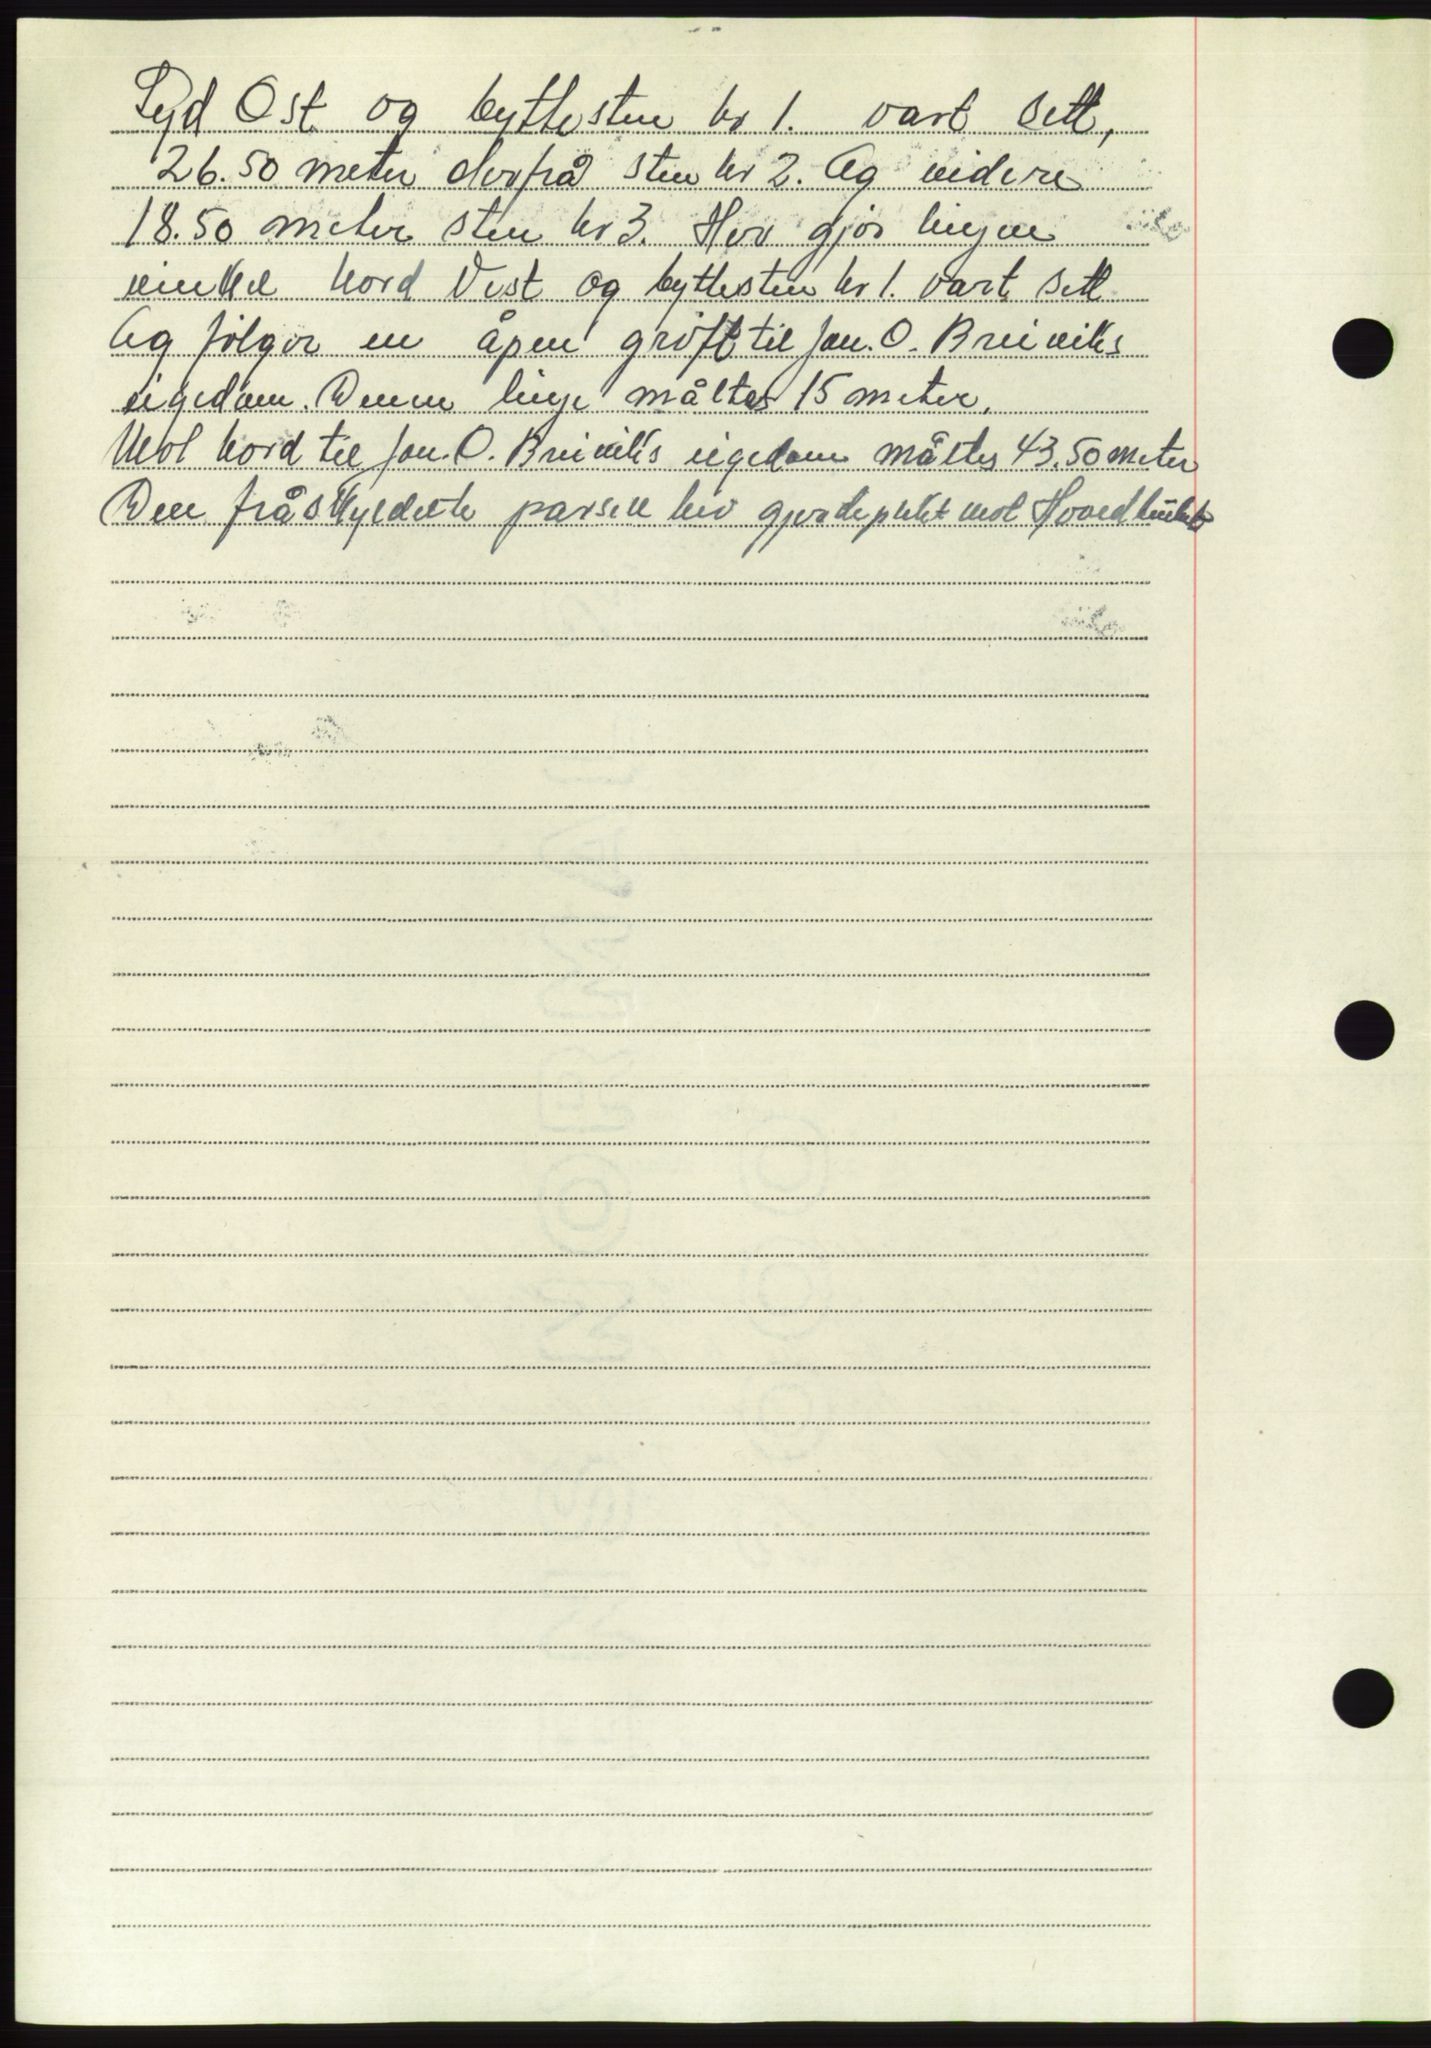 Syd Ost og byttesten nr 1. vart sett,
26.50 meter derfrå sten nr 2. Og videre
18.50 meter sten nr 3. Her gjør linjen
vinkel Nord Vest og byttesten nr 1. vart sett
Og følger en åpen grøft til Jon. O. Breiviks
eigedom. Denne linje måltes 15 meter.
Mot Nord til Jon. O. Breiviks eigedom måltes 43.50 meter
Den fråskyldelte parsell har gjerdeplikt mot Hovedbruket